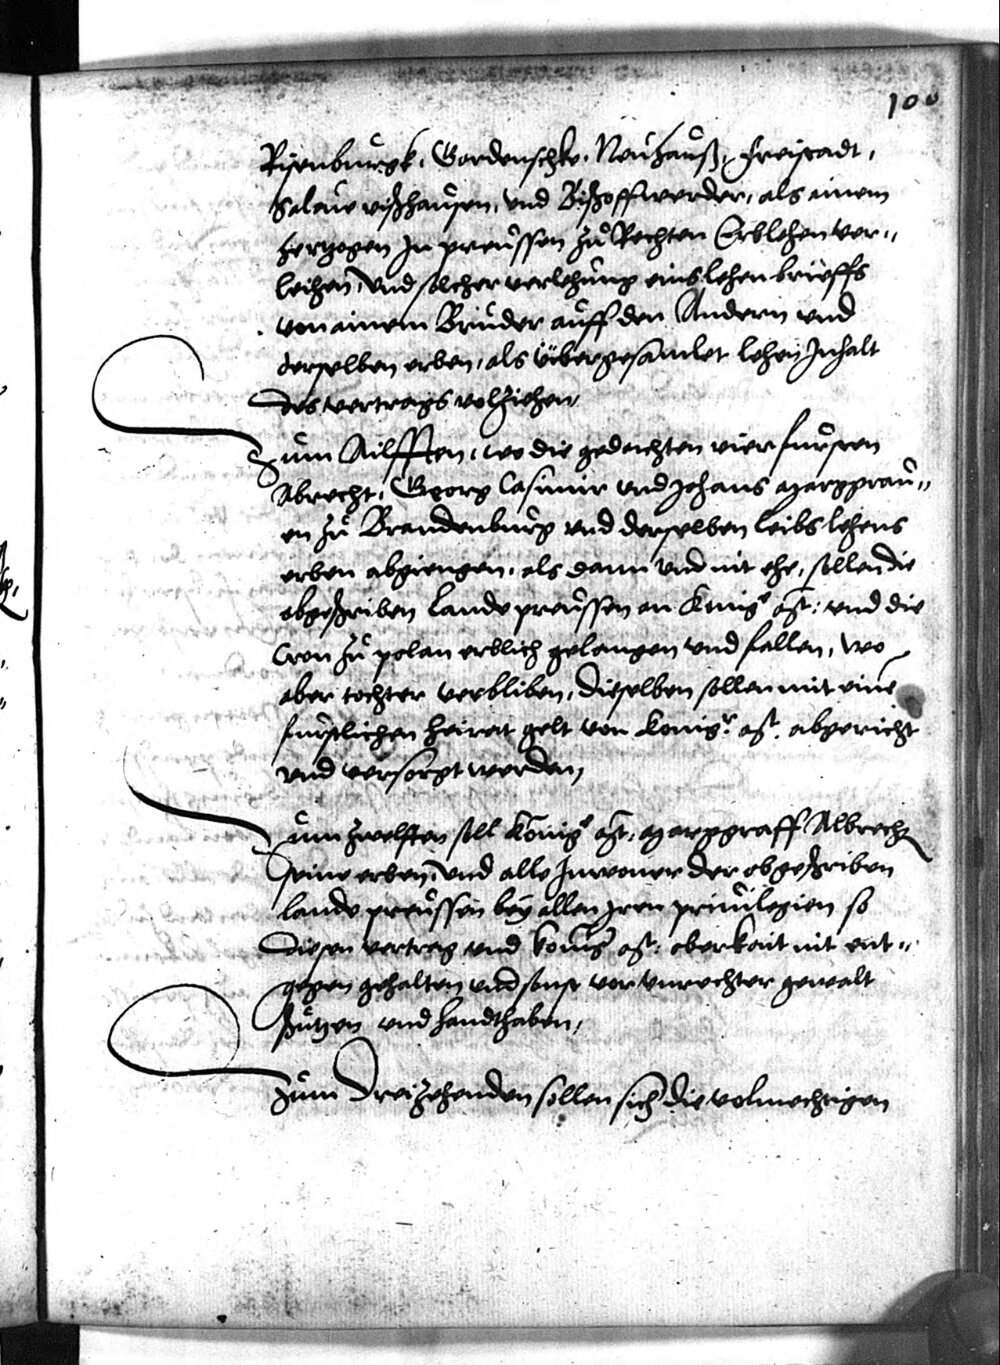 100
Risenburgk, Gardenschke, Neuhauß, Freistadt,
Salaw vißhausen, vnd Bischoffwerder, als ainem
hertzogen In preussen zu Rechten Erblehen ver-
leihen, Vnd solcher verlehung eins lehen brieffs
von ainem Bruder auff den Andern vnd
derselben erben, als vbergesamlet lehen Inhalt
des vertrags volziehen,
Zum Ailfften, wo die gedachten vier fursten
Albrecht, Georg Casimir vnd Johans marggrau-
en zu Brandenburg vnd derselben leibs lehens
erben abgiengen, als dann vnd nit ehe, sollen die
obgeschriben Lande preussen an Kunigr. Mt: vnd die
Cron zu polan erblich gelangen vnd fallen, wo
aber tochter verbliben, dieselben sollen mit eine
furstlichen heirat gelt von Konigr. Mt. abgericht
vnd versorgt werden,
Zum Zwelften soll Konigr. Mt. marggraff Albrecht
seine erben, vnd alle Inwoner der obgeschriben
lande preussen bey allen Iren priuilegien so
diesen vertrag vnd konigr Mt: oberkait nit ent-
gegen gehalten vnd sonst vor vnrechter gewalt
schutzen vnd handthaben,
Zum Dreizehenden sollen sich die volmechtigen